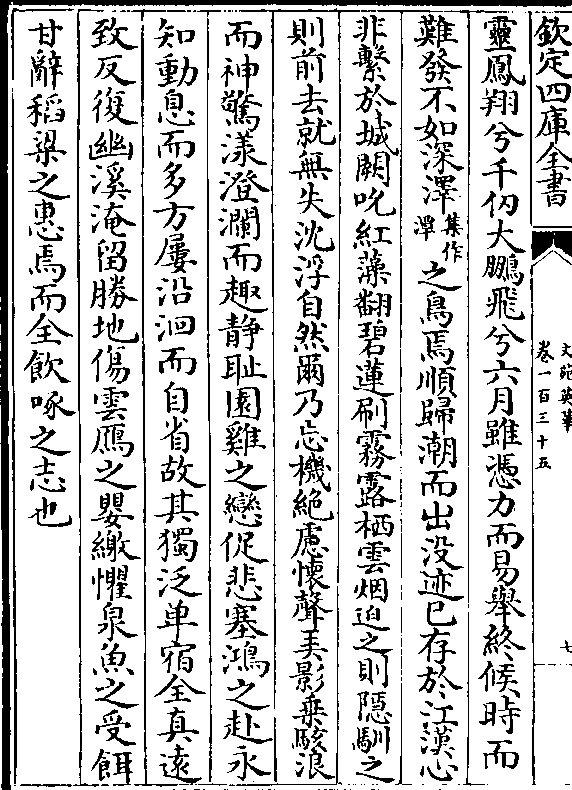 欽定四庫全書
文苑英華
卷一百三十五
七
靈鳳翔兮千仞大鵬飛兮六月雖憑力而易舉終候時而
難發不如深澤集作潭之鳥焉順歸潮而出没迹已存於江漢心
非繫於城闕吮紅藻翻碧蓮刷霧露栖雲烟迫之則隠馴之
則前去就無失沈浮自然爾乃忘機絶慮懐聲弄影乗駭浪
而神驚漾澄瀾而趣静耻園雞之戀促悲塞鴻之赴永
知動息而多方屢沿洄而自省故其獨泛单宿全真逺
致反復幽溪淹留勝地傷雲鴈之嬰繳懼泉魚之受餌
甘辭稻梁之惠焉而全飲啄之志也